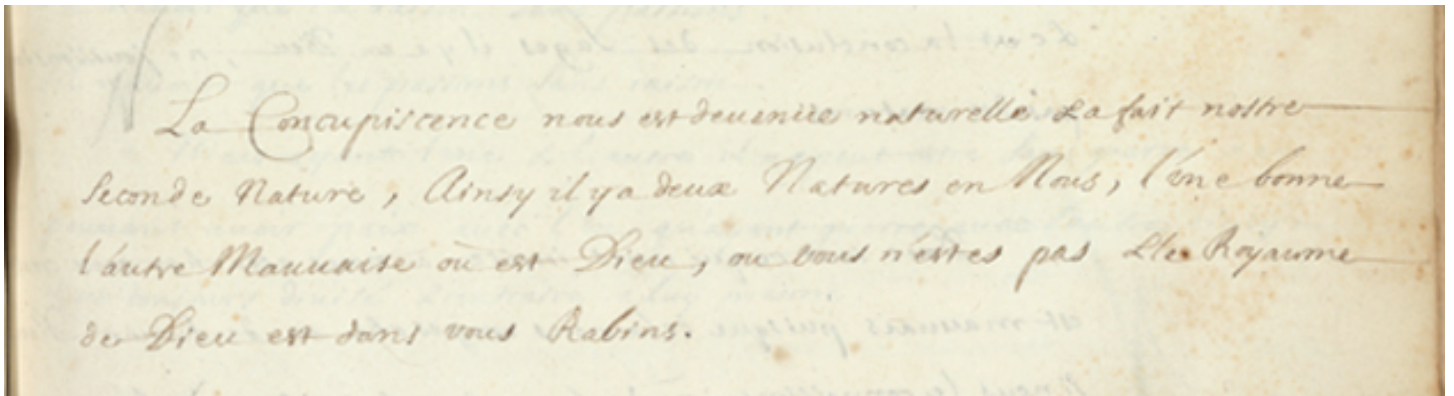 La Concupiscence nous est deuenüe naturelle & a fait nostre
seconde Nature, Ainsy il y a deux Natures en Nous, l'vne bonne
l'autre Mauuaise où est Dieu, ou vous n'estes pas & le Royaume
de Dieu est dans vous Rabins.